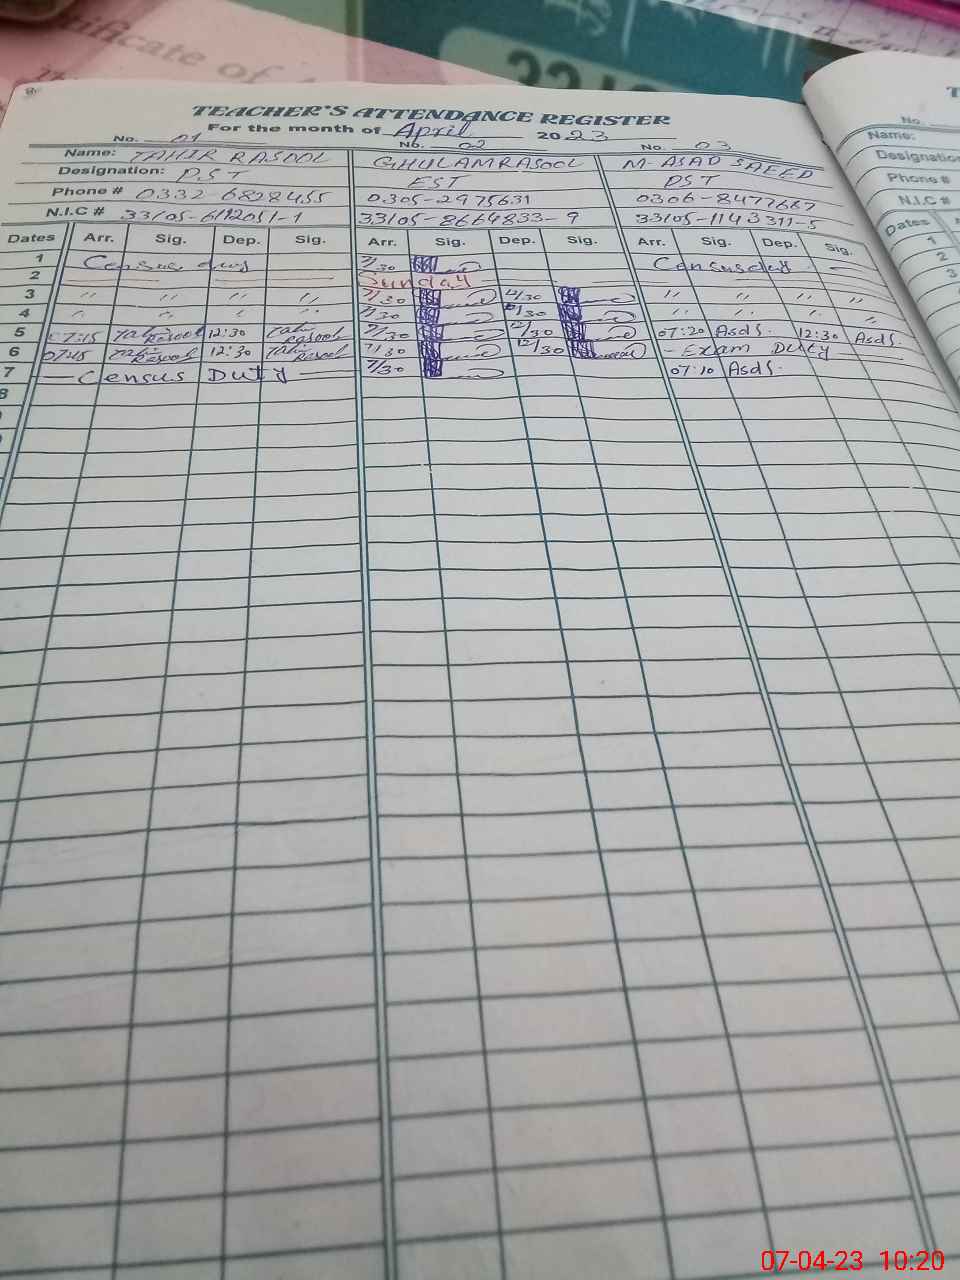 33/0
tificate of
TEACHER'S ATTENDANCE REGISTER
For the month of April 2023
No. 01 No. 02 No. 03
Name: TAHIR RASOOL GHULAM RASOOL M. ASAD SAEED
Designation: PST EST PST
Phone # 0332-6828455 0305-2975631 0306-8477687
N.I.C # 33105-6112051-1 33105-8664833-9 33105-1143311-5
Dates Arr. Sig. Dep. Sig. Arr. Sig. Dep. Sig. Arr. Sig. Dep. Sig.
1 Census duty 7/30 Census duty
2 Sunday
3 〃 〃 〃 〃 7/30 12/30 〃 〃 〃 〃
4 〃 〃 〃 〃 7/30 12/30 〃 〃 〃 〃
5 07:15 Tahir Rasool 12:30 Tahir Rasool 7/30 12/30 07:20 Asds. 12:30 Asds.
6 07:15 Tahir Rasool 12:30 Tahir Rasool 7/30 12/30 - Exam Duty
7 Census Duty 7/30 07:10 Asds.
8
No.
Name:
Designation
Phone #
N.I.C #
Dates
1
2
3
07-04-23 10:20